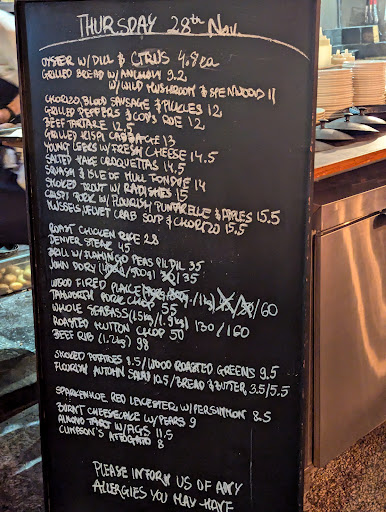 THURSDAY 28th Nov
OYSTER W/ DILL & CITRUS 4.8ea
GRILLED BREAD W/ ANCHOVY 9.2
W/ WILD MUSHROOM & SPENWOOD 11
CHORIZO, BLOOD SAUSAGE & PICKLES 12
GRILLED PEPPERS & COD'S ROE 12
BEEF TARTARE 12.5
GRILLED KISPI CABBAGE 13
YOUNG LEEKS W/ FRESH CHEESE 14.5
SALTED HAKE CROQUETTAS 14.5
SQUASH & ISLE OF MULL FONDUE 14
SMOKED TROUT W/ RADISHES 15
CRISPY PORK W/ FLOURISH PUNTARELLE & APPLES 15.5
MUSSELS, VELVET CRAB SOUP & CHORIZO 15.5
ROAST CHICKEN RICE 28
DENVER STEAK 45
BRILL W/ FLAMINGO PEAS PILPIL 35
JOHN DORY 35
WOOD FIRED PLAICE /60
TAMWORTH PORK CHOP 55
WHOLE SEABASS (1.5kg/1.9kg) 130/160
ROASTED MUTTON CHOP 50
BEEF RIB (1.2kg) 98
SMOKED POTATOES 8.5/WOOD ROASTED GREENS 9.5
FLOURISH AUTUMN SALAD 10.5/BREAD & BUTTER 3.5/5.5
SPARKENHOE RED LEICESTER W/ PERSIMMON 8.5
BURNT CHEESECAKE W/ PEARS 9
ALMOND TART W/ FIGS 11.5
CLIMPSON'S AFFOGATO 8
PLEASE INFORM US OF ANY
ALLERGIES YOU MAY HAVE